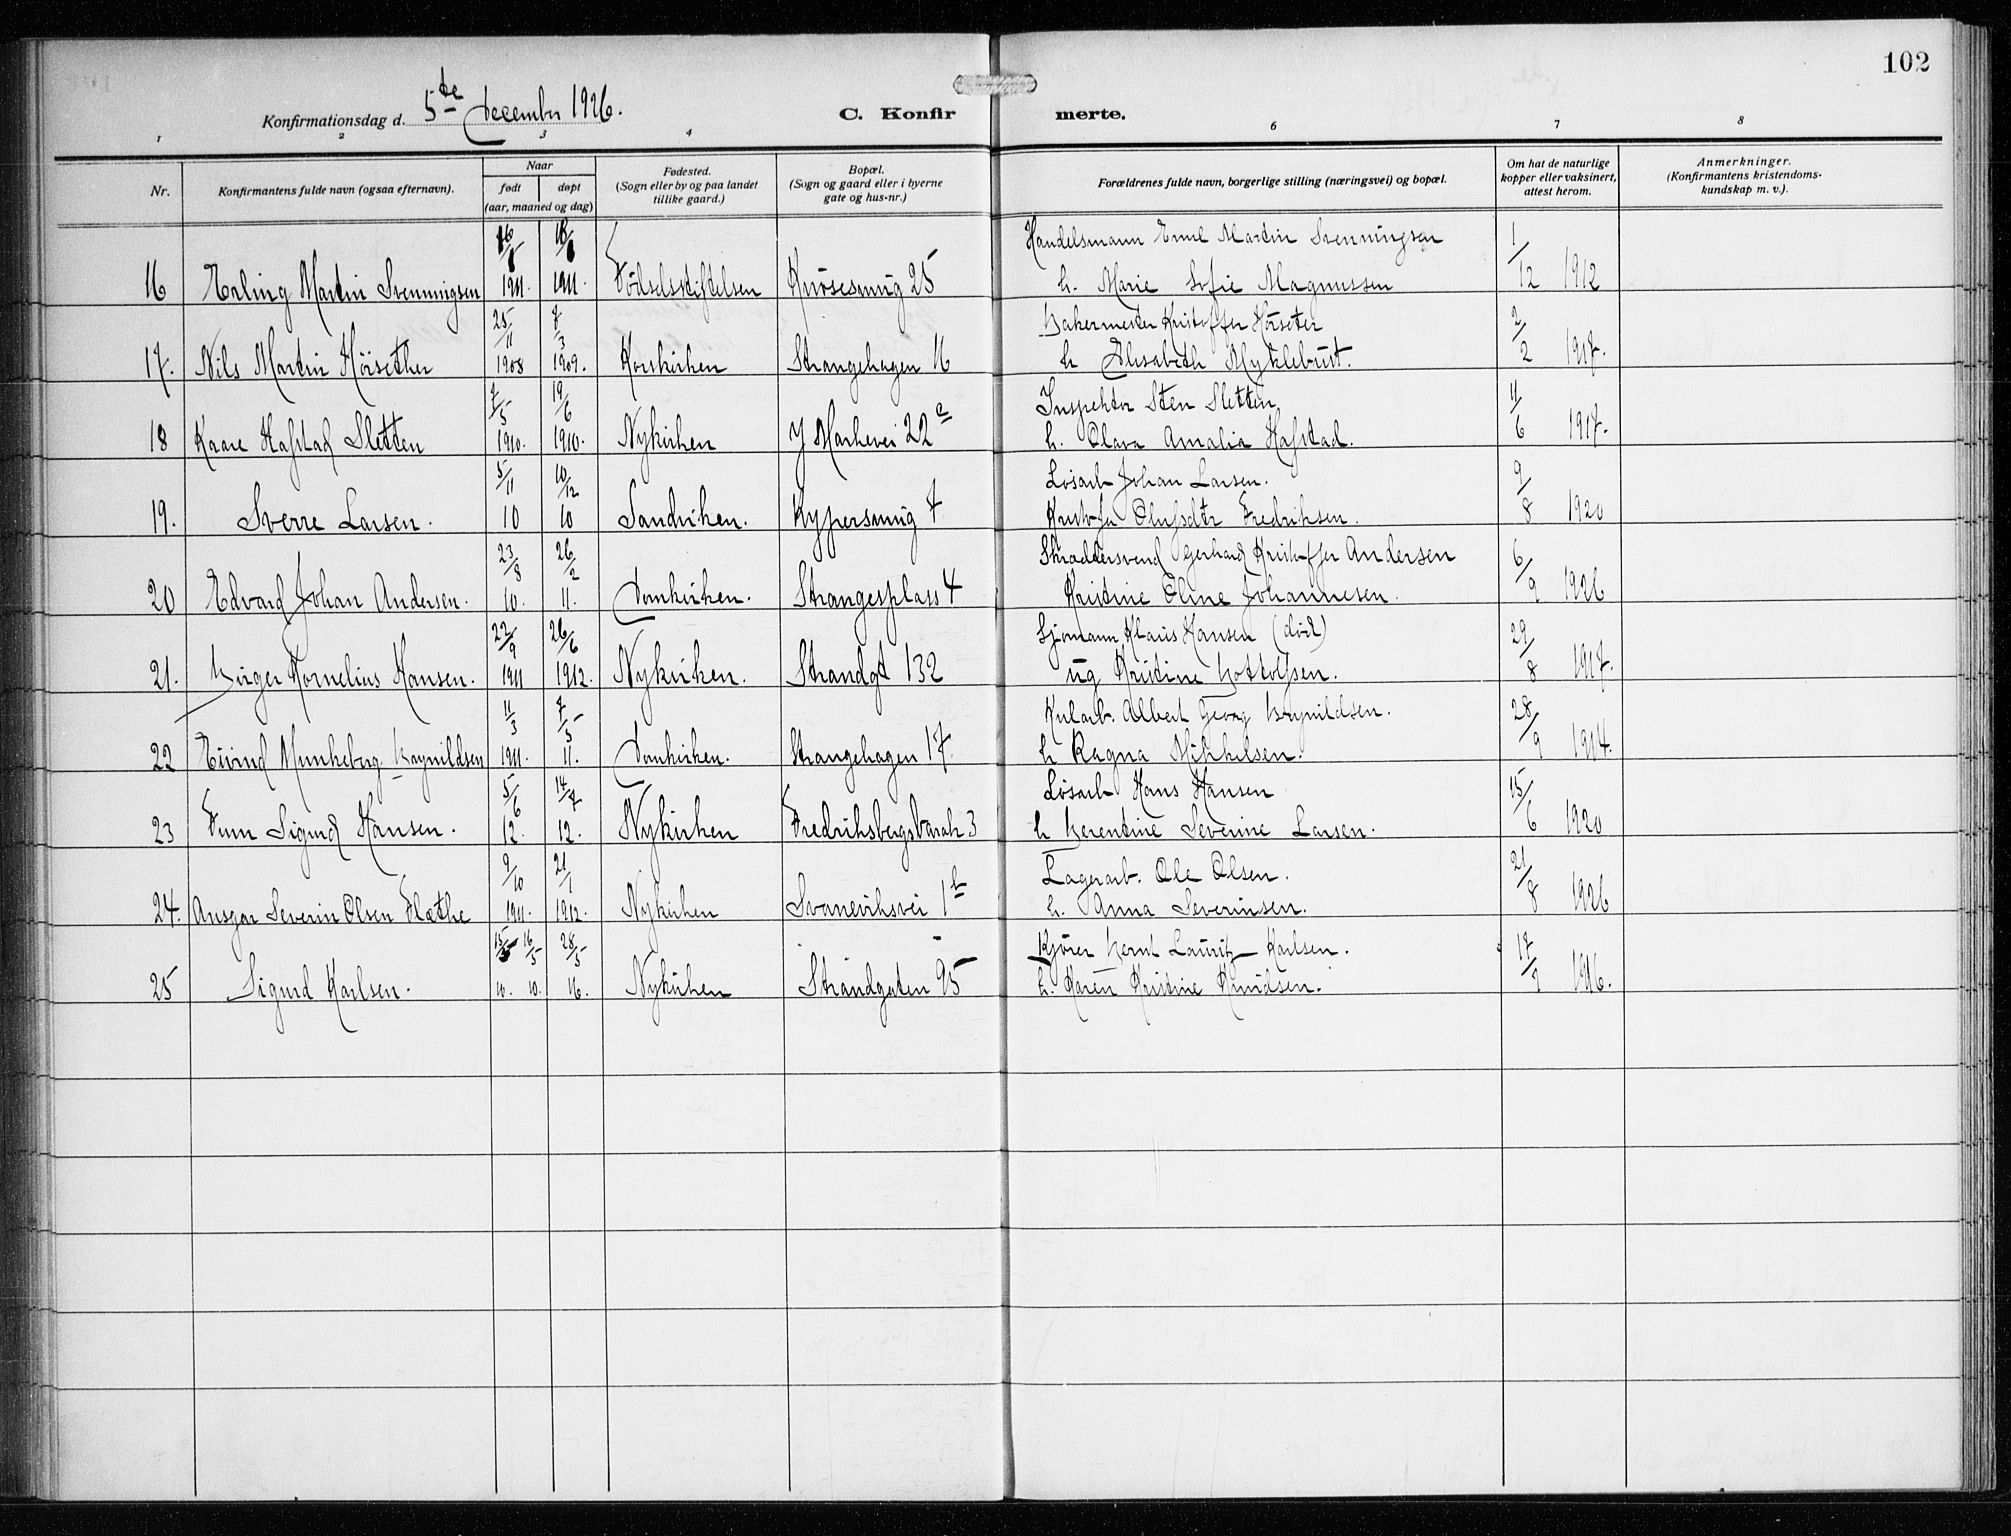 102
Konfirmationsdag d. 5te December 1926.
C. Konfirmerte.
1 2 3 4 6 7 8
Nr.
Konfirmantens fulde navn (ogsaa efternavn).
Naar
født
døpt
(aar, maaned og dag)
Fødested.
(Sogn eller by og paa landet
tillike gaard.)
Bopæl.
(Sogn og gaard eller i byerne
gate og hus-nr.)
Forældrenes fulde navn, borgerlige stilling (næringsvei) og bopæl.
Om hat de naturlige
kopper eller vaksinert,
attest herom.
Anmerkninger.
(Konfirmantens kristendoms-
kundskap m. v.).
Handelsmann Emil Martin Svenningsen 1/12 1912
16 Erling Martin Svenningsen 1911. 1911. Fødselsstiftelsen Knøsesmug 25 h. Marie Sofie Magnussen
25/11 7/3 Bakermester Kristoffer Hörseter 2/2 1917.
17. Nils Martin Hörsether 1908 1909. Korskirken Strangehagen 16 h Elisabeth Myklebust.
7/5 19/6 Inspektør Sten Sletten 11/6 1917.
18 Kaare Hafstad Sletten 1910. 1910. Nykirken Y Markevei 22a h. Clara Amalia Hafstad.
5/11 10/12 Løsarb Johan Larsen. 9/8 1920
19. Sverre Larsen. 10 10 Sandviken. Kypersmug 7 Kristofa Olufsdtr Fredriksen.
23/8 26/2 Skræddersvend Gerhard Kristoffer Andersen 6/9 1926
20 Edvard Johan Andersen. 10. 11. Domkirken. Strangesplass 4 Kristine Oline Johannesen.
22/9 26/6 Sjømann Klaus Hansen (død) 29/8 1917.
21. Birger Kornelius Hansen. 1911 1912. Nykirken. Strandgt 132 ug Kristine Bottolfsen.
11/3 7/5 Kularb. Albert Georg Brynildsen. 28/9 1914.
22 Eivind Munkeberg Brynildsen 1911. 11. Domkirken. Strangehagen 17 h Ragna Mikkelsen.
5/6 14/7 Løsarb Hans Hansen 15/6 1920
23 Finn Sigurd Hansen. 12. 12. Nykirken Fredriksbergsbarak 3 h Berentine Severine Larsen.
9/10 21/1 Lagerarb. Ole Olsen. 21/8 1926
24. Ansgar Severin Olsen Flæthe 1911. 1912. Nykirken Svaneviksvei 1b h. Anna Severinsen.
16/5 28/5 Kjører Bernt Lauritz Karlsen. 1916.
25 Sigurd Karlsen. 10. 10. 16. Nykirken Strandgaten 95 h. Karen Kristine Knudsen.